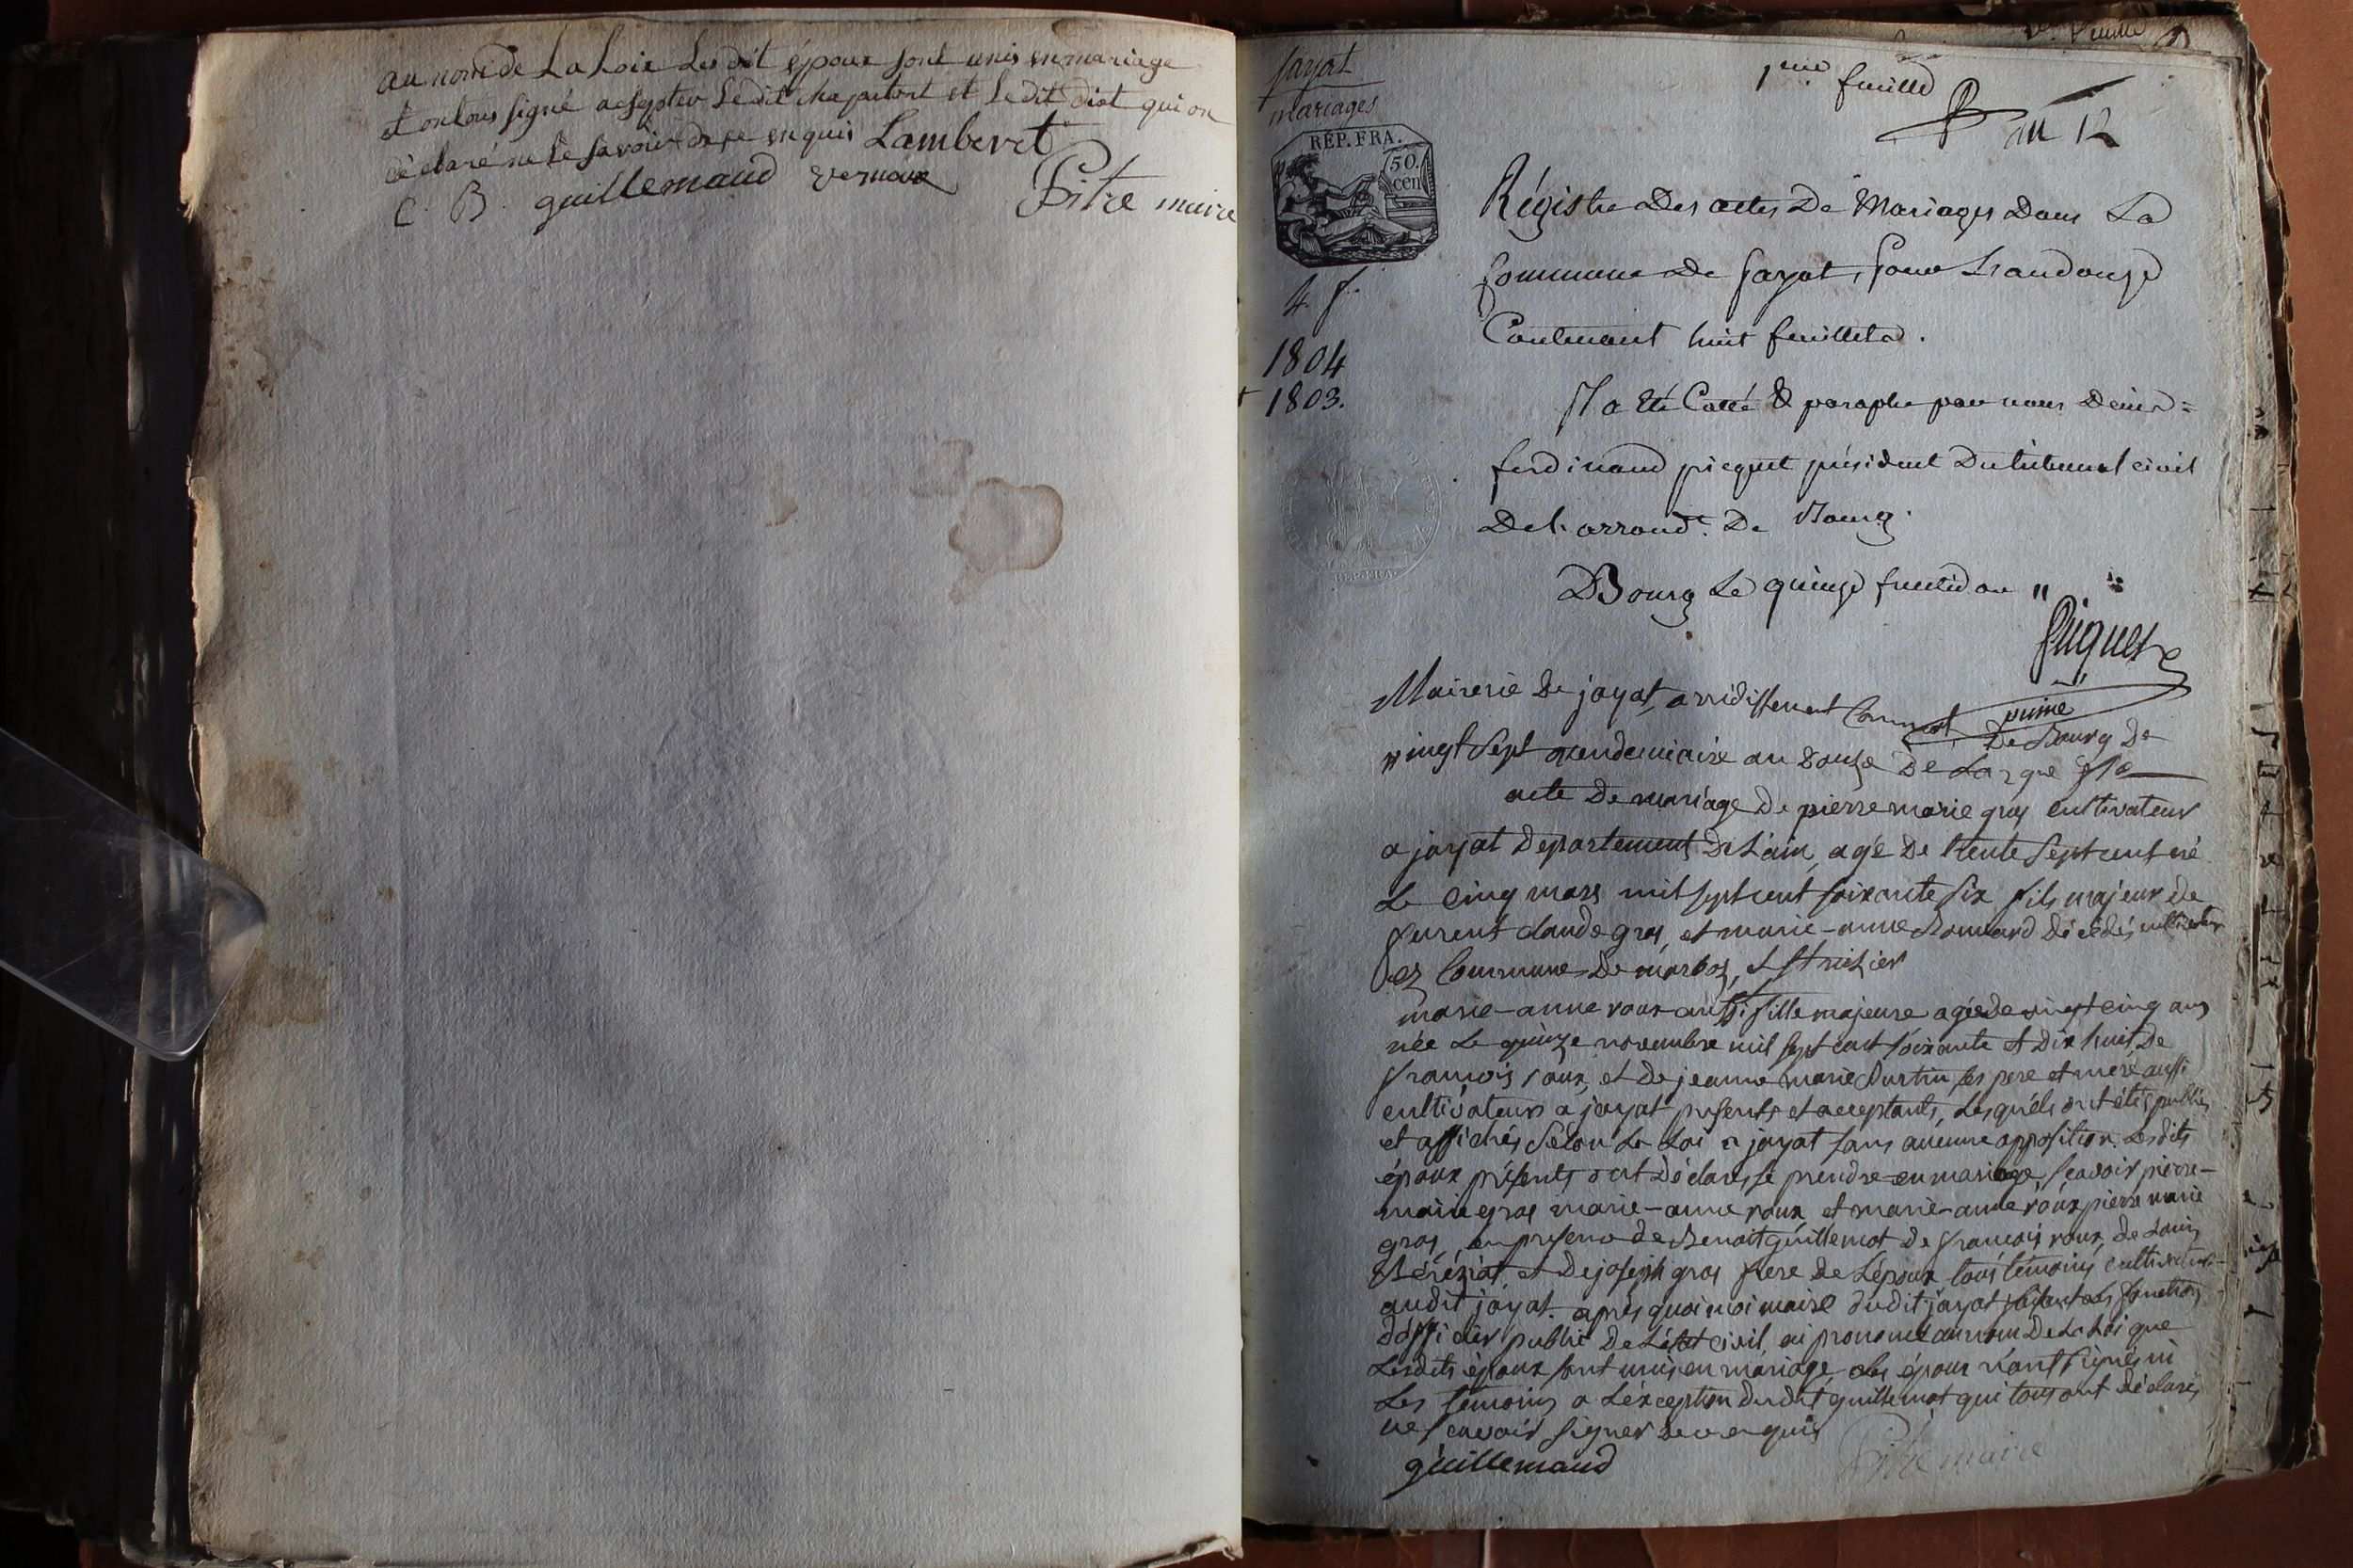 au nom de La Loix Les dit époux sont unis en mariage
et ont tous signé acsepter Ledit chapatort et Ledit diot qui on
déclaré ne le savoir de ce enquis Lambert
C. B. guillemaud vernoux Pitre maire
jayat
mariages
1ere feuille
an 12
REP. FRA.
50. cen
4 f.
1804
1803.
Régistre Des actes De Mariages Dans La
Commune De Jayat, pour L'an douze
Contenant huit feuillets.
Il a Eté Cotté & paraphé par nous Denis=
ferdinand picquet président Du tribunal civil
De l'arrond.t De Bourg.
Bourg Le quinze fructidor an 11
Piquet
Mairerie De jayat, arridissement Communal De Bourg De
vingt Sept vendemiaire an Douze De La rque
acte De mariage De pierre marie gras cultivateur
a jayat Departement De L'ain, agé De trente Sept ans né
Le Cinq mars mil sept cent soixante six fils majeur de
furent claude gras, et marie-anne Décédés
Commune De marboz, et
marie-anne roux aussi fille majeure agée de vingt cinq ans
née Le quinze novembre mil sept cent soixante et Dix huit, De
françois roux, et De jeanne marie ses pere et mere aussi
cultivateurs a jayat presents et acceptants, Lesquels ont étés publiés
et affichés Selon La Loi a jayat sans aucune opposition. Lesdits
époux présents ont Déclarés se prendre en mariage, scavoir pierre-
marie gras marie-anne roux, et marie-anne roux pierre marie
gras, en presence de Benoit guillemot de françois roux, de Louis
Béréziat, et De joseph gras frere de L'époux tous témoins cultivateurs
audit jayat. après quoi moi maire dudit jayat faisant Les fonctions
d'officier public De L'état civil, ai prononcé au nom De La Loi que
Lesdits époux sont unis en mariage, Les époux n'ont signés ni
Les témoins a L'exception dudit guillemot qui tous ont déclarés
ne scavoir signer De ce enquis
guillemaud Pitre maire